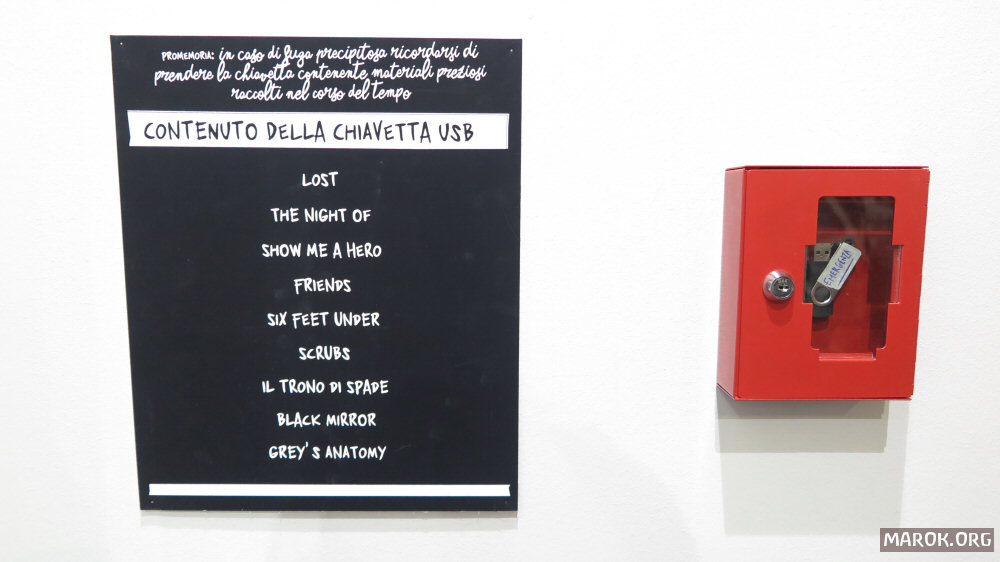 PROMEMORIA: in caso di fuga precipitosa ricordarsi di
prendere la chiavetta contenente materiali preziosi
raccolti nel corso del tempo
CONTENUTO DELLA CHIAVETTA USB
LOST
THE NIGHT OF
SHOW ME A HERO
FRIENDS
SIX FEET UNDER
SCRUBS
IL TRONO DI SPADE
BLACK MIRROR
GREY'S ANATOMY
EMERGENZA
MAROK.ORG